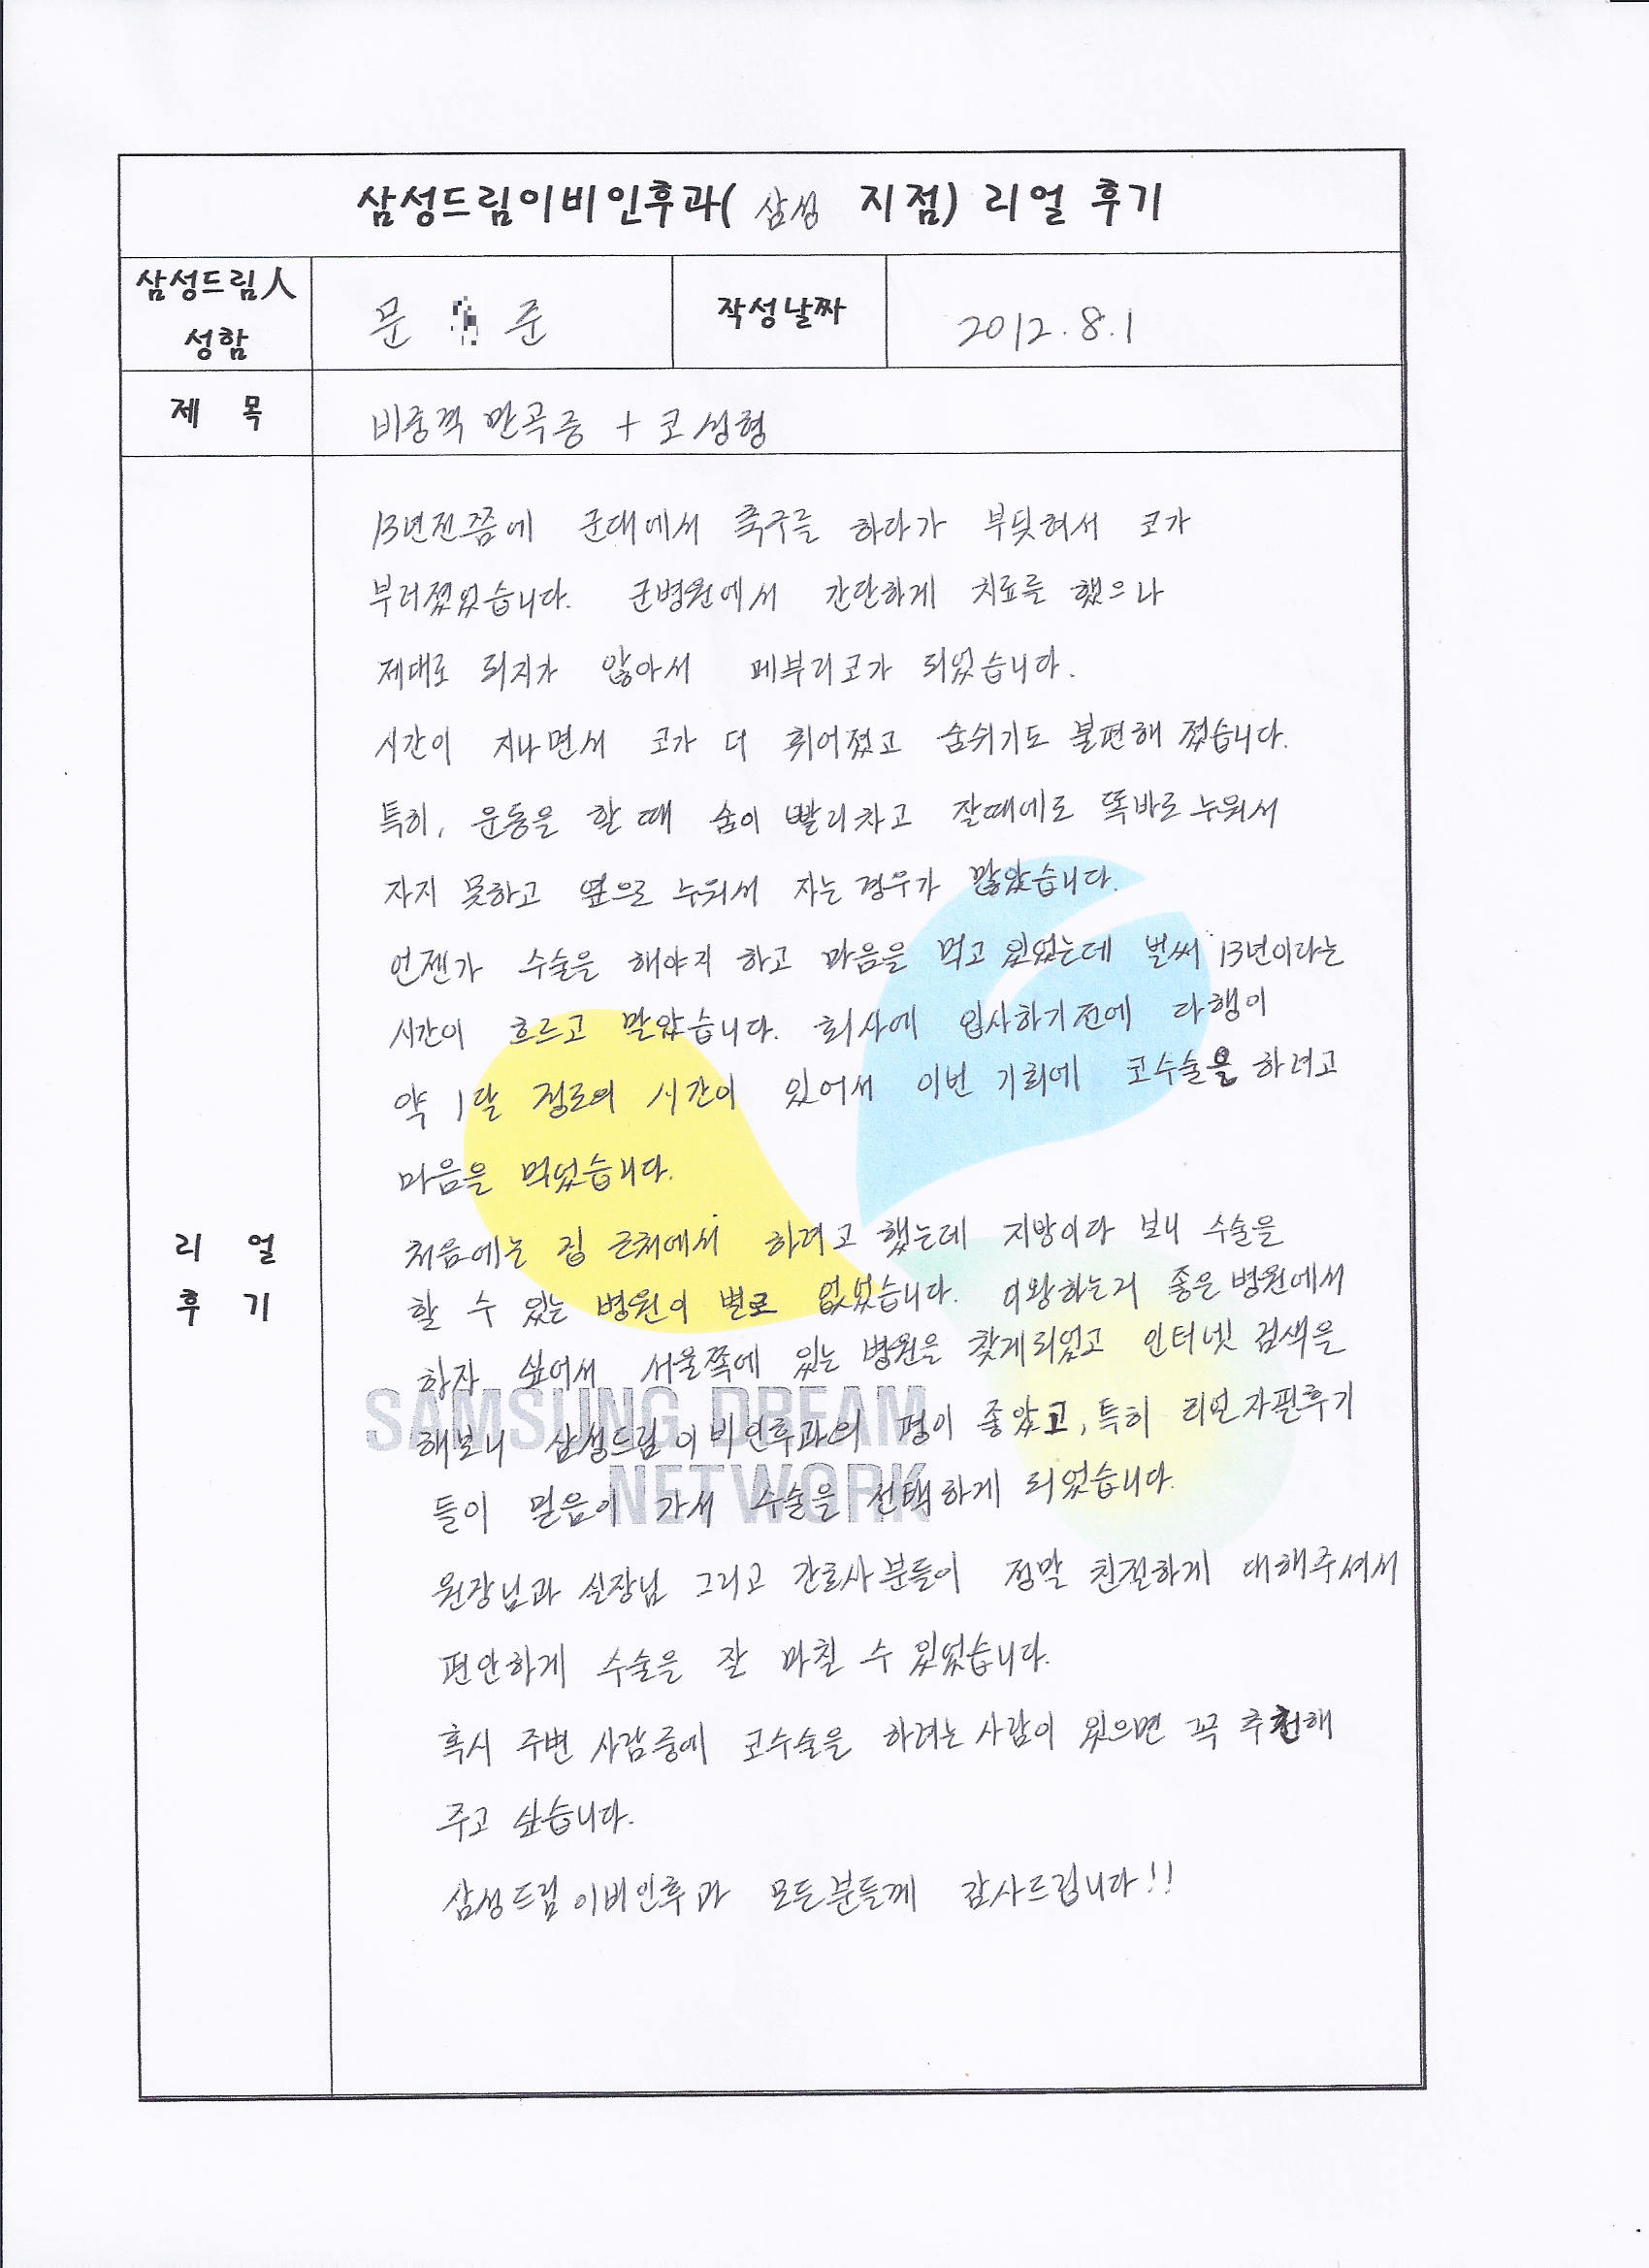 삼성드림이비인후과( 삼성 지점) 리얼 후기
삼성드림人
성함
문 준
작성날짜
2012.8.1
제 목
비중격 만곡증 + 코 성형
리 얼
후 기
13년전쯤에 군대에서 축구를 하다가 부딪혀서 코가
부러졌었습니다. 군병원에서 간단하게 치료를 했으나
제대로 되지가 않아서 메부리코가 되었습니다.
시간이 지나면서 코가 더 휘어졌고 숨쉬기도 불편해 졌습니다.
특히, 운동을 할 때 숨이 빨리차고 잘때에도 똑바로 누워서
자지 못하고 옆으로 누워서 자는 경우가 많았습니다.
언젠가 수술을 해야지 하고 마음을 먹고 있었는데 벌써 13년이라는
시간이 흐르고 말았습니다. 회사에 입사하기전에 다행이
약 1달 정도의 시간이 있어서 이번 기회에 코수술을 하려고
마음을 먹었습니다.
처음에는 집 근처에서 하려고 했는데 지방이다 보니 수술을
할 수 있는 병원이 별로 없었습니다. 이왕하는거 좋은 병원에서
하자 싶어서 서울쪽에 있는 병원을 찾게되었고 인터넷 검색을
해보니 삼성드림이비인후과의 평이 좋았고, 특히 리얼자필후기
들이 믿음이 가서 수술을 선택하게 되었습니다.
원장님과 실장님 그리고 간호사분들이 정말 친절하게 대해주셔서
편안하게 수술을 잘 마칠 수 있었습니다.
혹시 주변 사람중에 코수술을 하려는 사람이 있으면 꼭 추천해
주고 싶습니다.
삼성드림이비인후과 모든분들께 감사드립니다!!
SAMSUNG DREAM
NETWORK